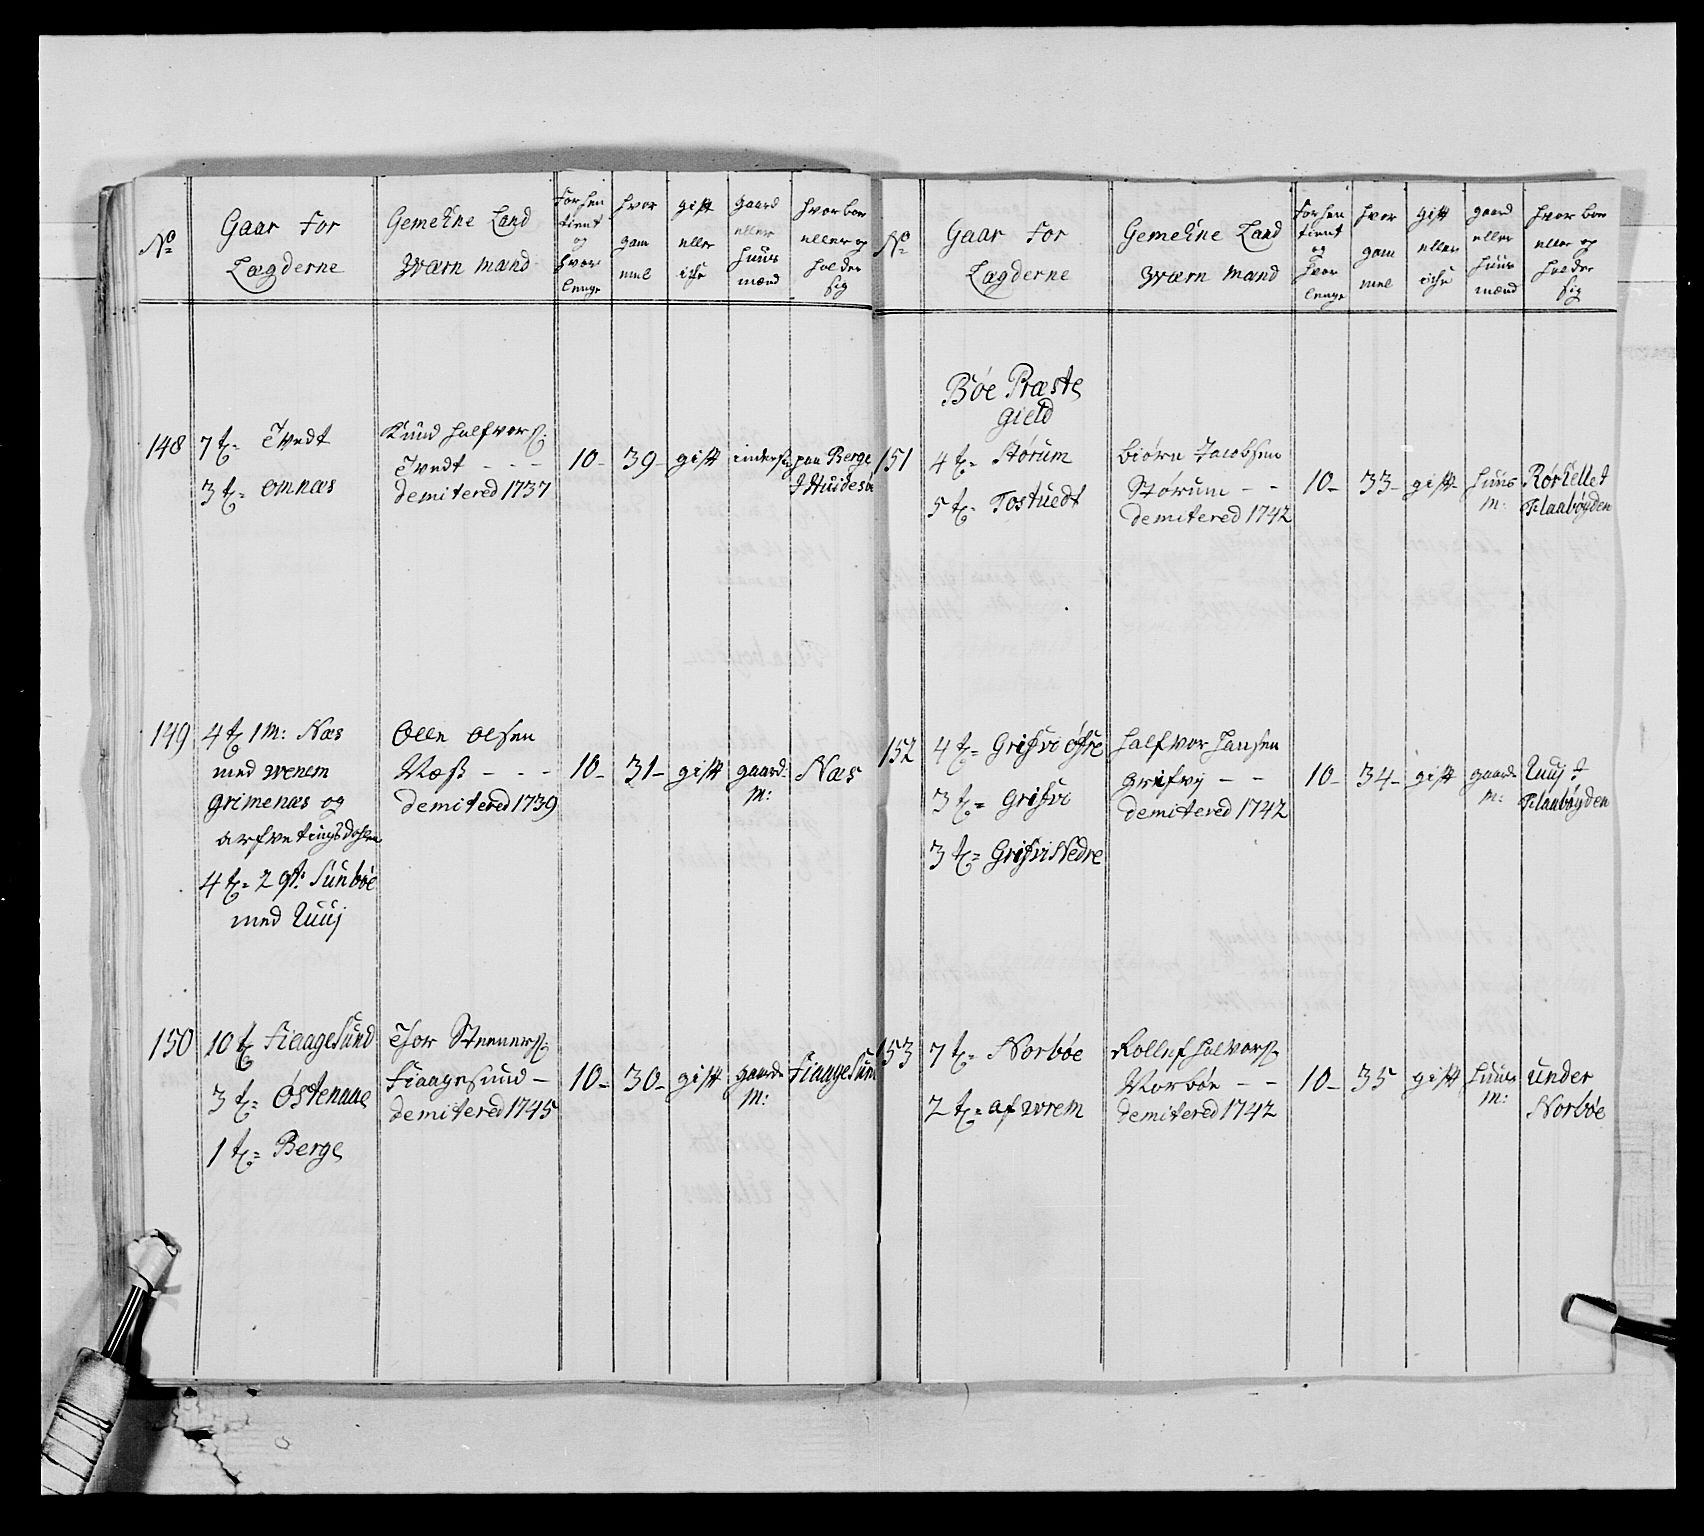 No
Gaar For
Lægderne
Gemeene Land
Wærn Mand
Forhen
tient
og
hvor
lenge
hvor
gam
mel
gift
eller
iche
gaard
eller
huus
mænd
hvor boe
eller op
holder
sig
148
7 t. Tvedt
3 t. Omnæs
Knud Halfvors:
Tvedt - - -
demitered 1737
10 -
39 -
gift
inderst
paa Berge
I Huidesøe
149
4 t. 1 M: Næs
med Wenem
Grimenæs og
4 t. 2 Sunbøe
med Uuj
Olle Olsen
Næss - - -
demitered 1739
10 -
31 -
gift
gaard
M:
Næs
150
10 t. Fiaagesund
3 t. Østenaae
1 t. Berge
Thor Stenners:
Fiaagesund -
demitered 1745
10 -
30 -
gift
gaard
M:
Fiaagesun
No
Gaar For
Lægderne
Gemeene Land
Wærn Mand
Forhen
tient
og
hvor
lenge
hvor
gam
mel
gift
eller
iche
gaard
eller
huus
mænd
hvor boe
eller op
holder
sig
Bøe Præste
Gield
151
4 t. Størum
5 t. Tostuedt
Biørn Jacobsen
Størum - -
demitered 1742
10 -
33 -
gift -
huus
M:
Rørkellet
Flaabøyden
152
4 t. Grifvi øfre
3 t. Grifvi
3 t. Grifvi Nedre
Halfvor Hansen
Grifvj - -
demitered 1742
10 -
34 -
gift
gaard
M:
Uuj i
Flaabøyden
153
7 t. Norbøe
2 t. af Wrem
Rollef Halvors:
Norbøe - -
demitered 1742
10 -
35
gift
huus
M:
under
Norbøe